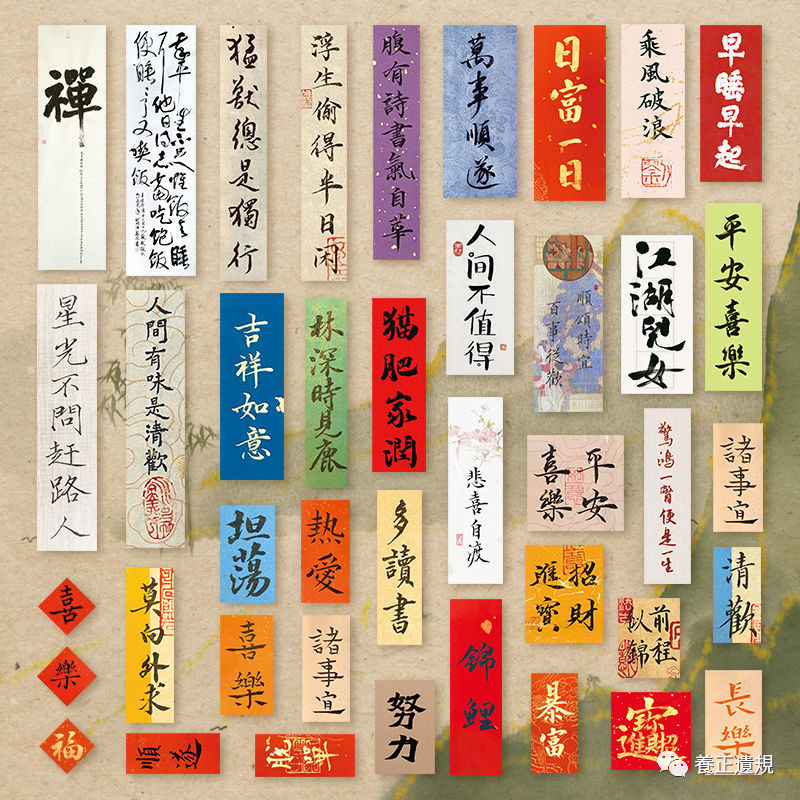 禪
猛獸總是獨行
浮生偷得半日闲
腹有詩書氣自華
萬事順遂
日富一日
乘風破浪
早睡早起
人间不值得
順頌時宜
百事從歡
江湖兒女
平安喜樂
星光不問赶路人
人間有味是清歡
吉祥如意
林深時見鹿
猫肥家潤
悲喜自渡
平安
喜樂
驚鴻一瞥便是一生
諸事宜
坦蕩
熱愛
多讀書
招財
進寶
清歡
喜
樂
福
莫向外求
喜樂
諸事宜
錦鯉
前程
似錦
努力
暴富
招財進寶
長樂
順遂
養正遺規